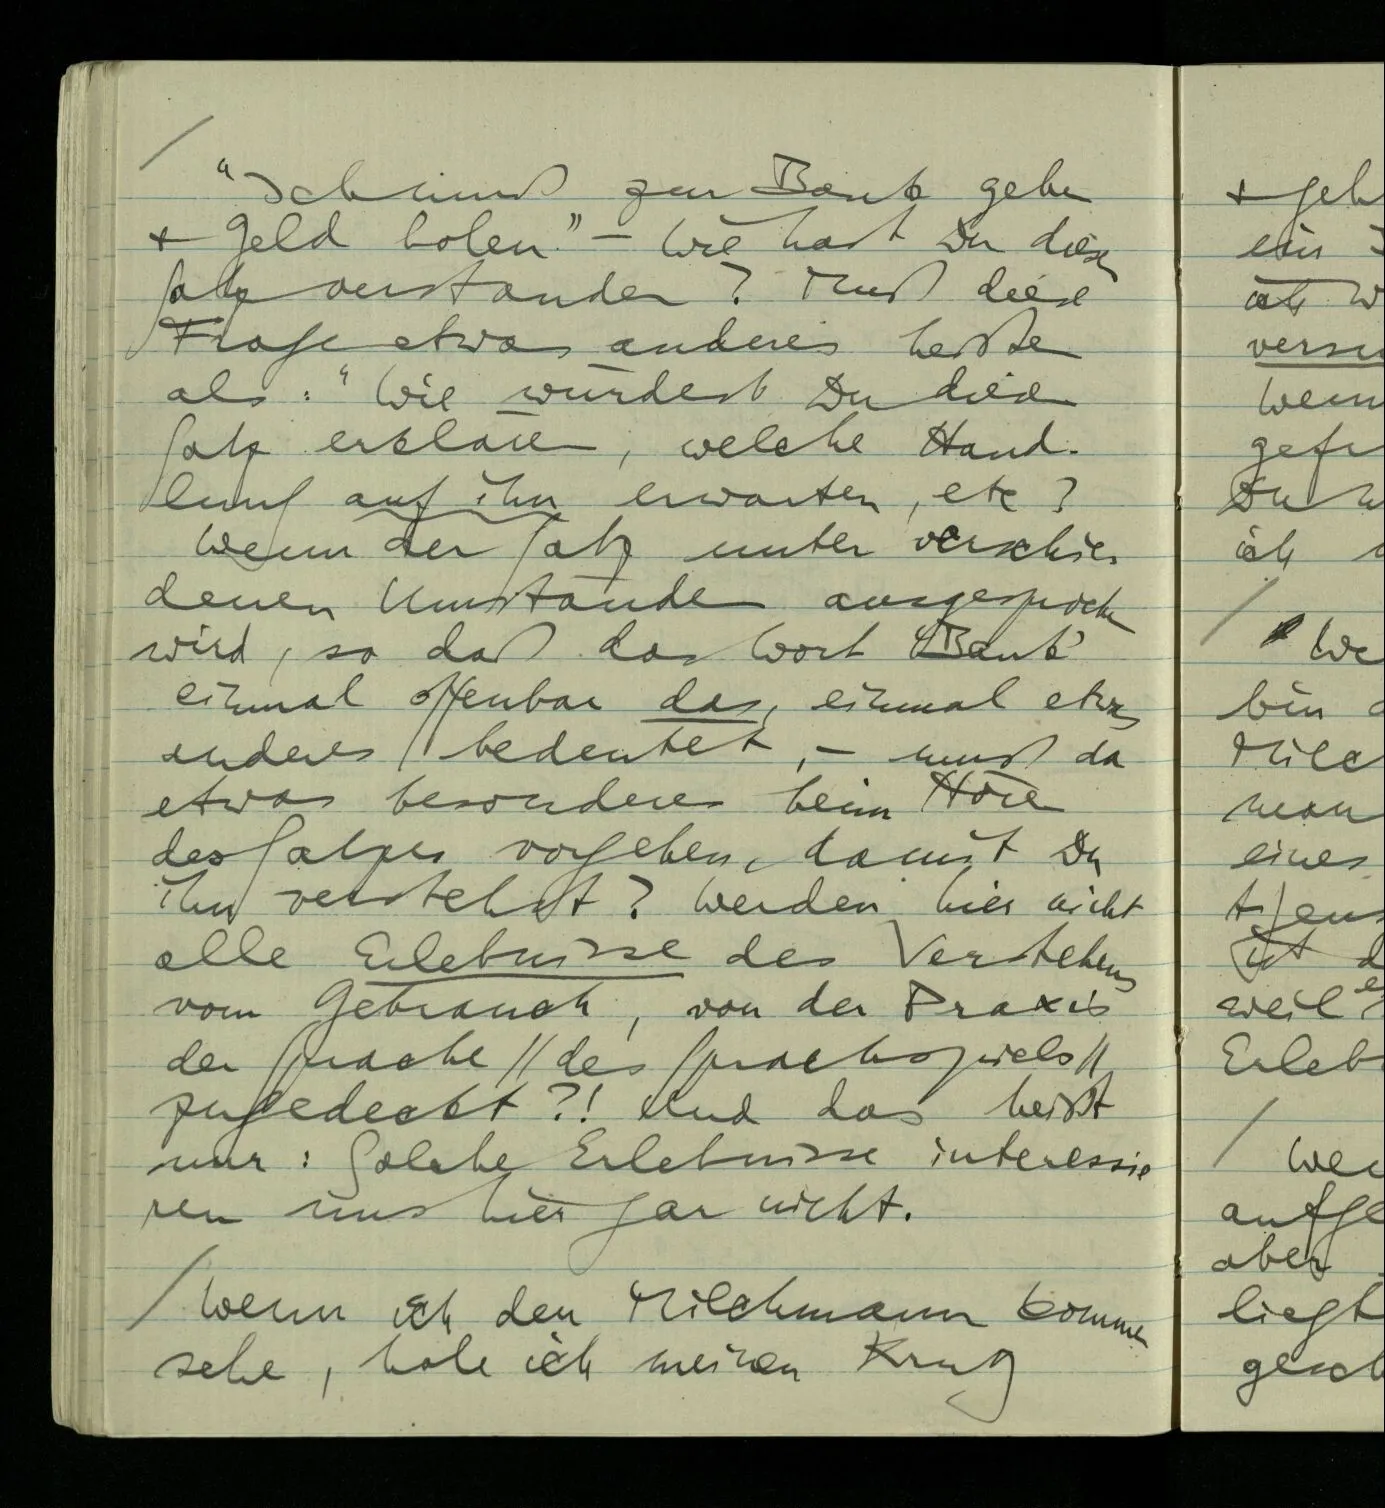 /
"Ich muß zur Bank gehen
+ Geld holen." – Wie hast Du diesen
Satz verstanden? Muß diese
Frage etwas anderes heißen
als: "Wie würdest Du diesen
Satz erklären, welche Hand-
lung auf ihn erwarten, etc?
Wenn der Satz unter verschie-
denen Umständen ausgesprochen
wird, so daß das Wort 'Bank'
einmal offenbar das, einmal etwas
anderes bedeutet, – muß da
etwas besonderes beim Hören
des Satzes vorgehen, damit Du
ihn verstehst? Werden hier nicht
alle Erlebnisse des Verstehens
vom Gebrauch, von der Praxis
der Sprache // des Sprachspiels //
zugedeckt?! Und das heißt
nur: Solche Erlebnisse interessie
ren uns hier gar nicht.
/ Wenn ich den Milchmann kommen
sehe, hole ich meinen Krug
+ geh
ein
ich w
versu
Wenn
gefr
Du
ich
/ We
bin
Milc
man
eines
ist d
weil
Erleb
/ Wen
aufge
aber
liegt
gesch